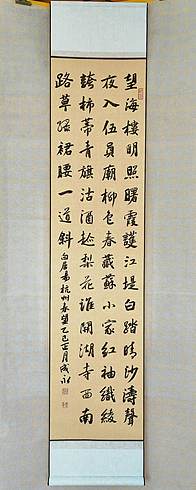 望海樓明照曙霞護江堤白踏晴沙濤聲
夜入伍員廟柳色春藏蘇小家紅袖織綾
誇柿蒂青旗沽酒趁梨花誰開湖寺西南
路草綠裙腰一道斜
白居易杭州春望乙巳正月